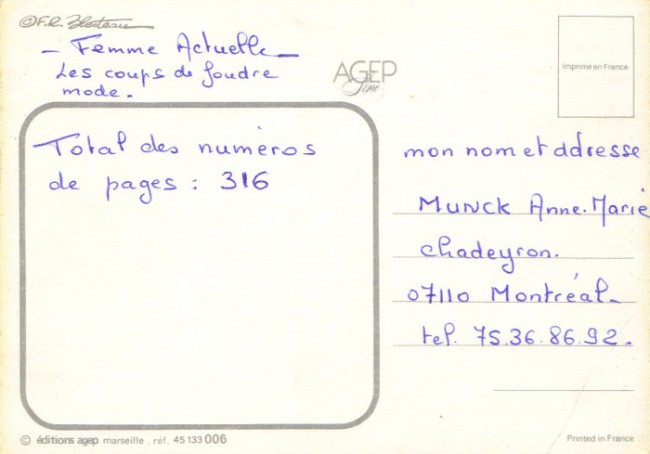 ©F.R.
— Femme Actuelle —
Les coups de foudre
mode.
AGEP
Imprimé en France
Total des numéros
de pages : 316
mon nom et adresse
MUNCK Anne-Marie
Chadeyron.
07110 Montréal_
tel. 75.36.86.92.
© éditions agep marseille . réf. 45 133 006
Printed in France